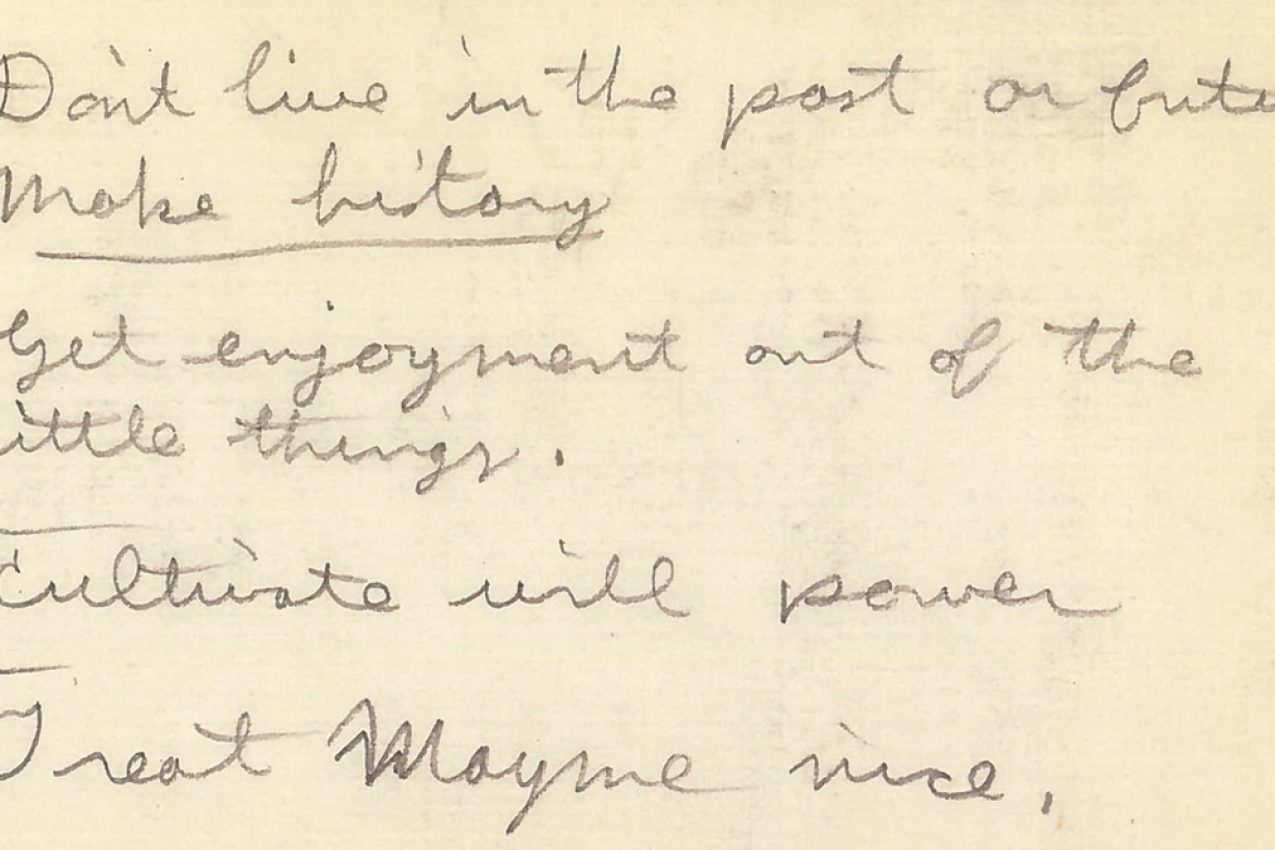 Don't live in the past or futu
Make history
Get enjoyment out of the
ittle things.
Cultivate will power
Treat Mayme nice.